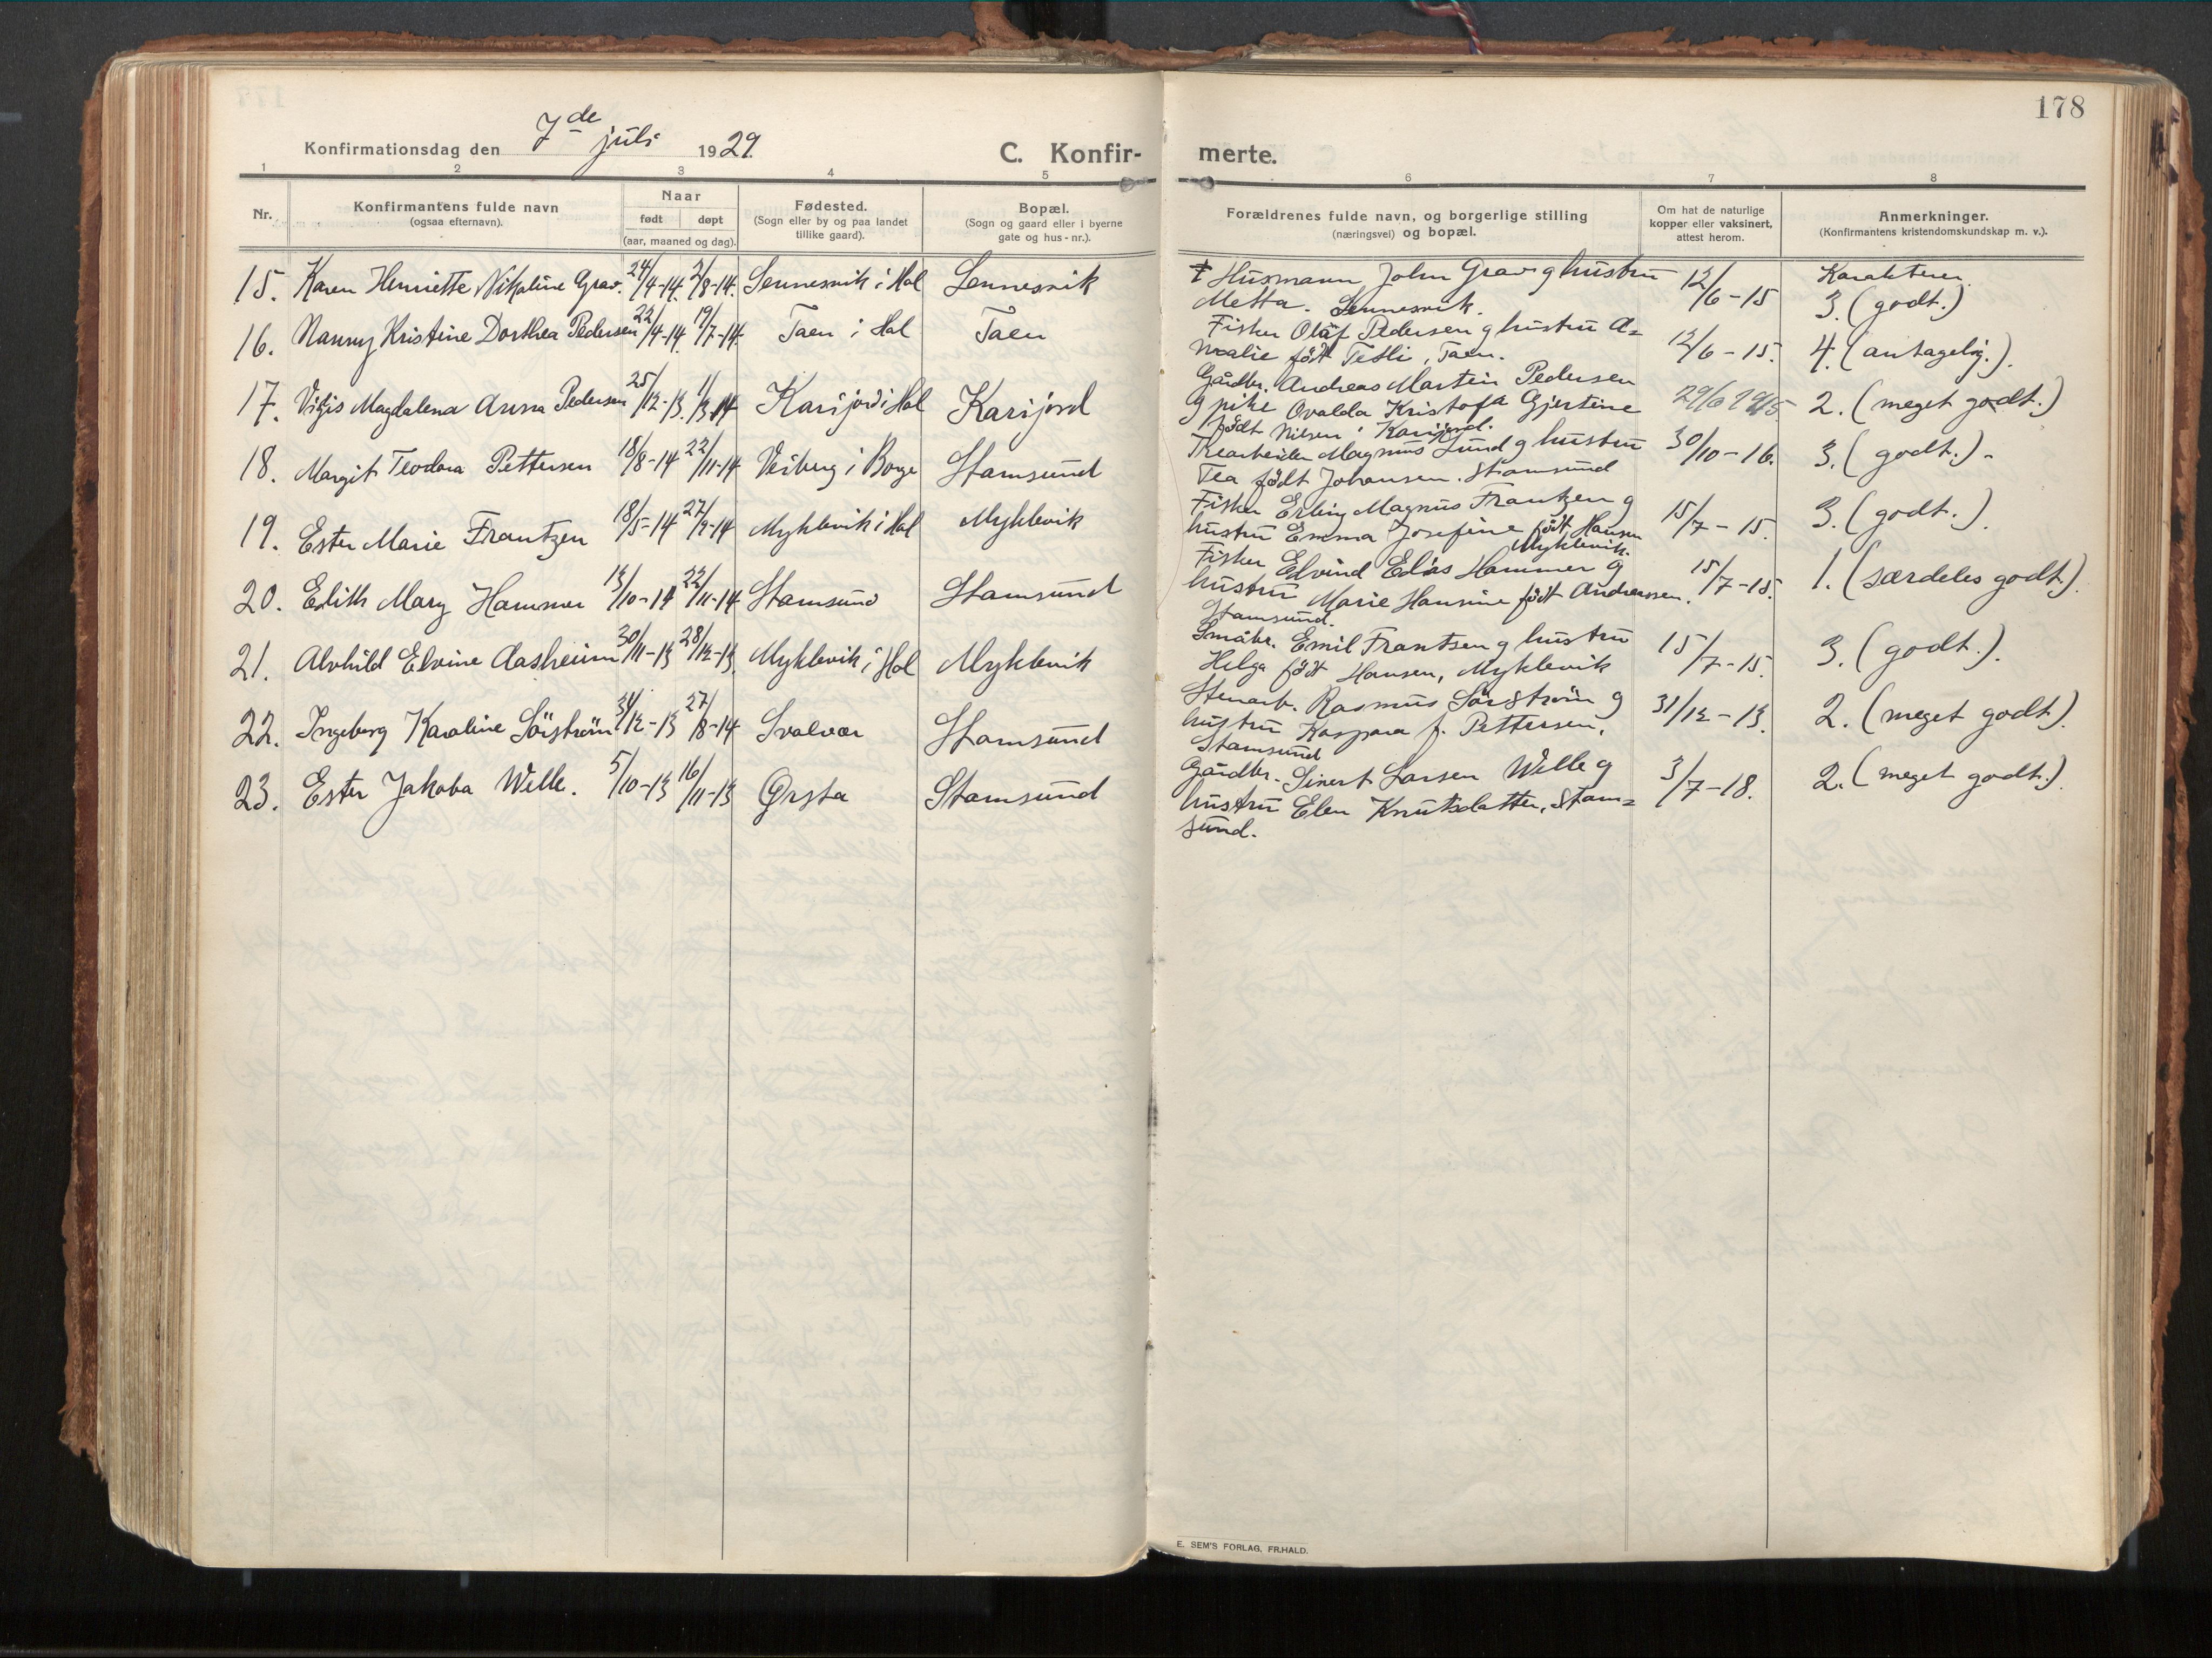 178
Konfirmationsdag den 7de juli 1929.
C. Konfirmerte.
1 2 3 4 5 6 7 8
Nr.
Konfirmantens fulde navn
(ogsaa efternavn).
Naar
født døpt
(aar, maaned og dag).
Fødested.
(Sogn eller by og paa landet
tillike gaard).
Bopæl.
(Sogn og gaard eller i byerne
gate og hus-nr.).
Forældrenes fulde navn, og borgerlige stilling
(næringsvei) og bopæl.
Om hat de naturlige
kopper eller vaksinert,
attest herom.
Anmerkninger.
(Konfirmantens kristendomskundskap m. v.).
15. Karen Henriette Nikoline Grav. 24/4-14. 2/8-14. Sennesvik i Hol Sennesvik
Husmann John Grav g hustru
Metta. Sennesvik.
12/6-15
Karakterer
3. (godt.)
16. Nanny Kristine Dorthea Pedersen 22/4-14. 19/7-14. Taen i Hol Taen
Fisker Olaf Pedersen g hustru A=
malie født Tetli, Taen.
12/6-15. 4. (antagelig.).
17. Vigis Magdalena Anna Pedersen 25/12-13. 1/3-14 Karijord i Hol Karijord
Gårdbr. Andreas Martin Pedersen
g pike Ovalda Kristofa Gjertine
født Nilsen i Karijord.
29/6 1915 2. (meget godt.)
18. Margit Teodora Pettersen 18/8-14 22/11-14 Veiberg i Borge Stamsund
Trearbeider Magnus Lund g hustru
Tea født Johansen. Stamsund
30/10-16. 3. (godt.).
19. Ester Marie Frantzen 18/5-14 27/9-14 Myklevik i Hol Myklevik
Fisker Erling Magnus Frantzen g
hustru Emma Josefine født Hansen
Myklevik.
15/7-15. 3. (godt.).
20. Edith Mary Hammer 13/10-14 22/11-14 Stamsund Stamsund
Fisker Elvind Edias Hammer g
hustru Marie Hansine født Andreassen.
Stamsund.
15/7-15. 1. (særdeles godt.).
21. Alvhild Elvine Aasheim 30/11-13 28/12-13. Myklevik i Hol Myklevik
Småbr. Emil Frantsen g hustru
Helga født Hansen, Myklevik
15/7-15. 3. (godt.).
22. Ingeborg Karoline Sörström 31/12-13 27/8-14 Svolvær Stamsund
Stenarb. Rasmus Sörström g
hustru Kaspara f. Pettersen,
Stamsund
31/12-13. 2. (meget godt).
23. Ester Jakoba Welle. 5/10-13 16/11-13 Ørsta Stamsund
Gårdbr. Sivert Larsen Welle g
hustru Elen Knutsdatter, Stam=
sund.
3/7-18. 2. (meget godt.).
E. SEM'S FORLAG, FR.HALD.